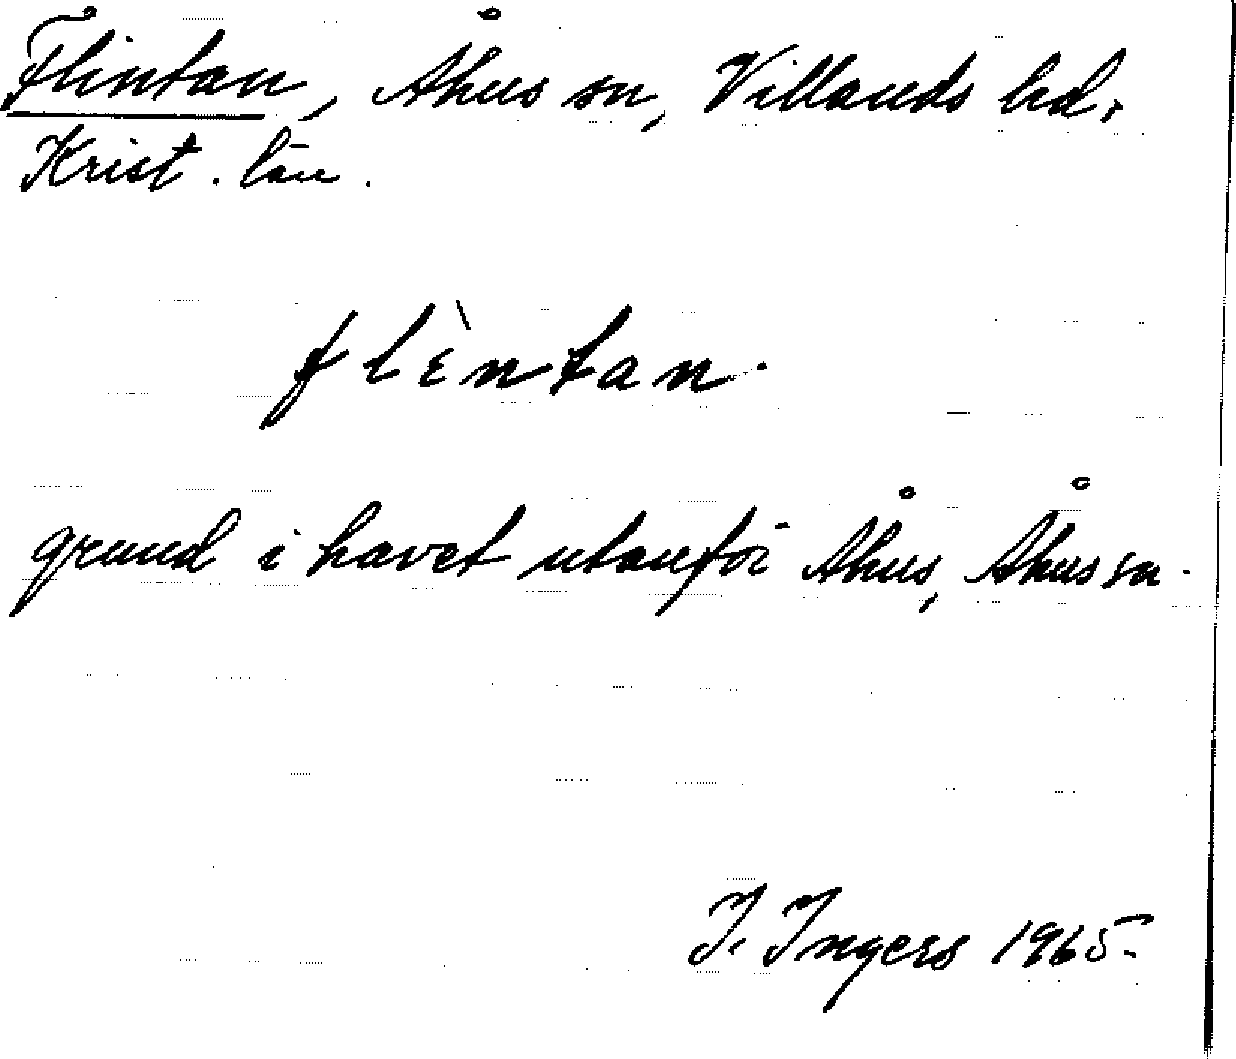 Flintan, Åhus sn, Villands hd.
Krist. län.
flɛ̀ntan.
grund i havet utanför Åhus, Åhus sn.
I. Ingers 1965.